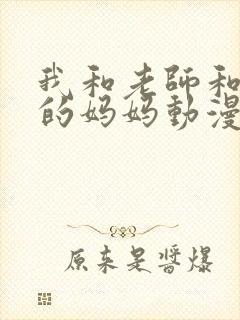 我和老師和
的妈妈動漫
原来是醬爆